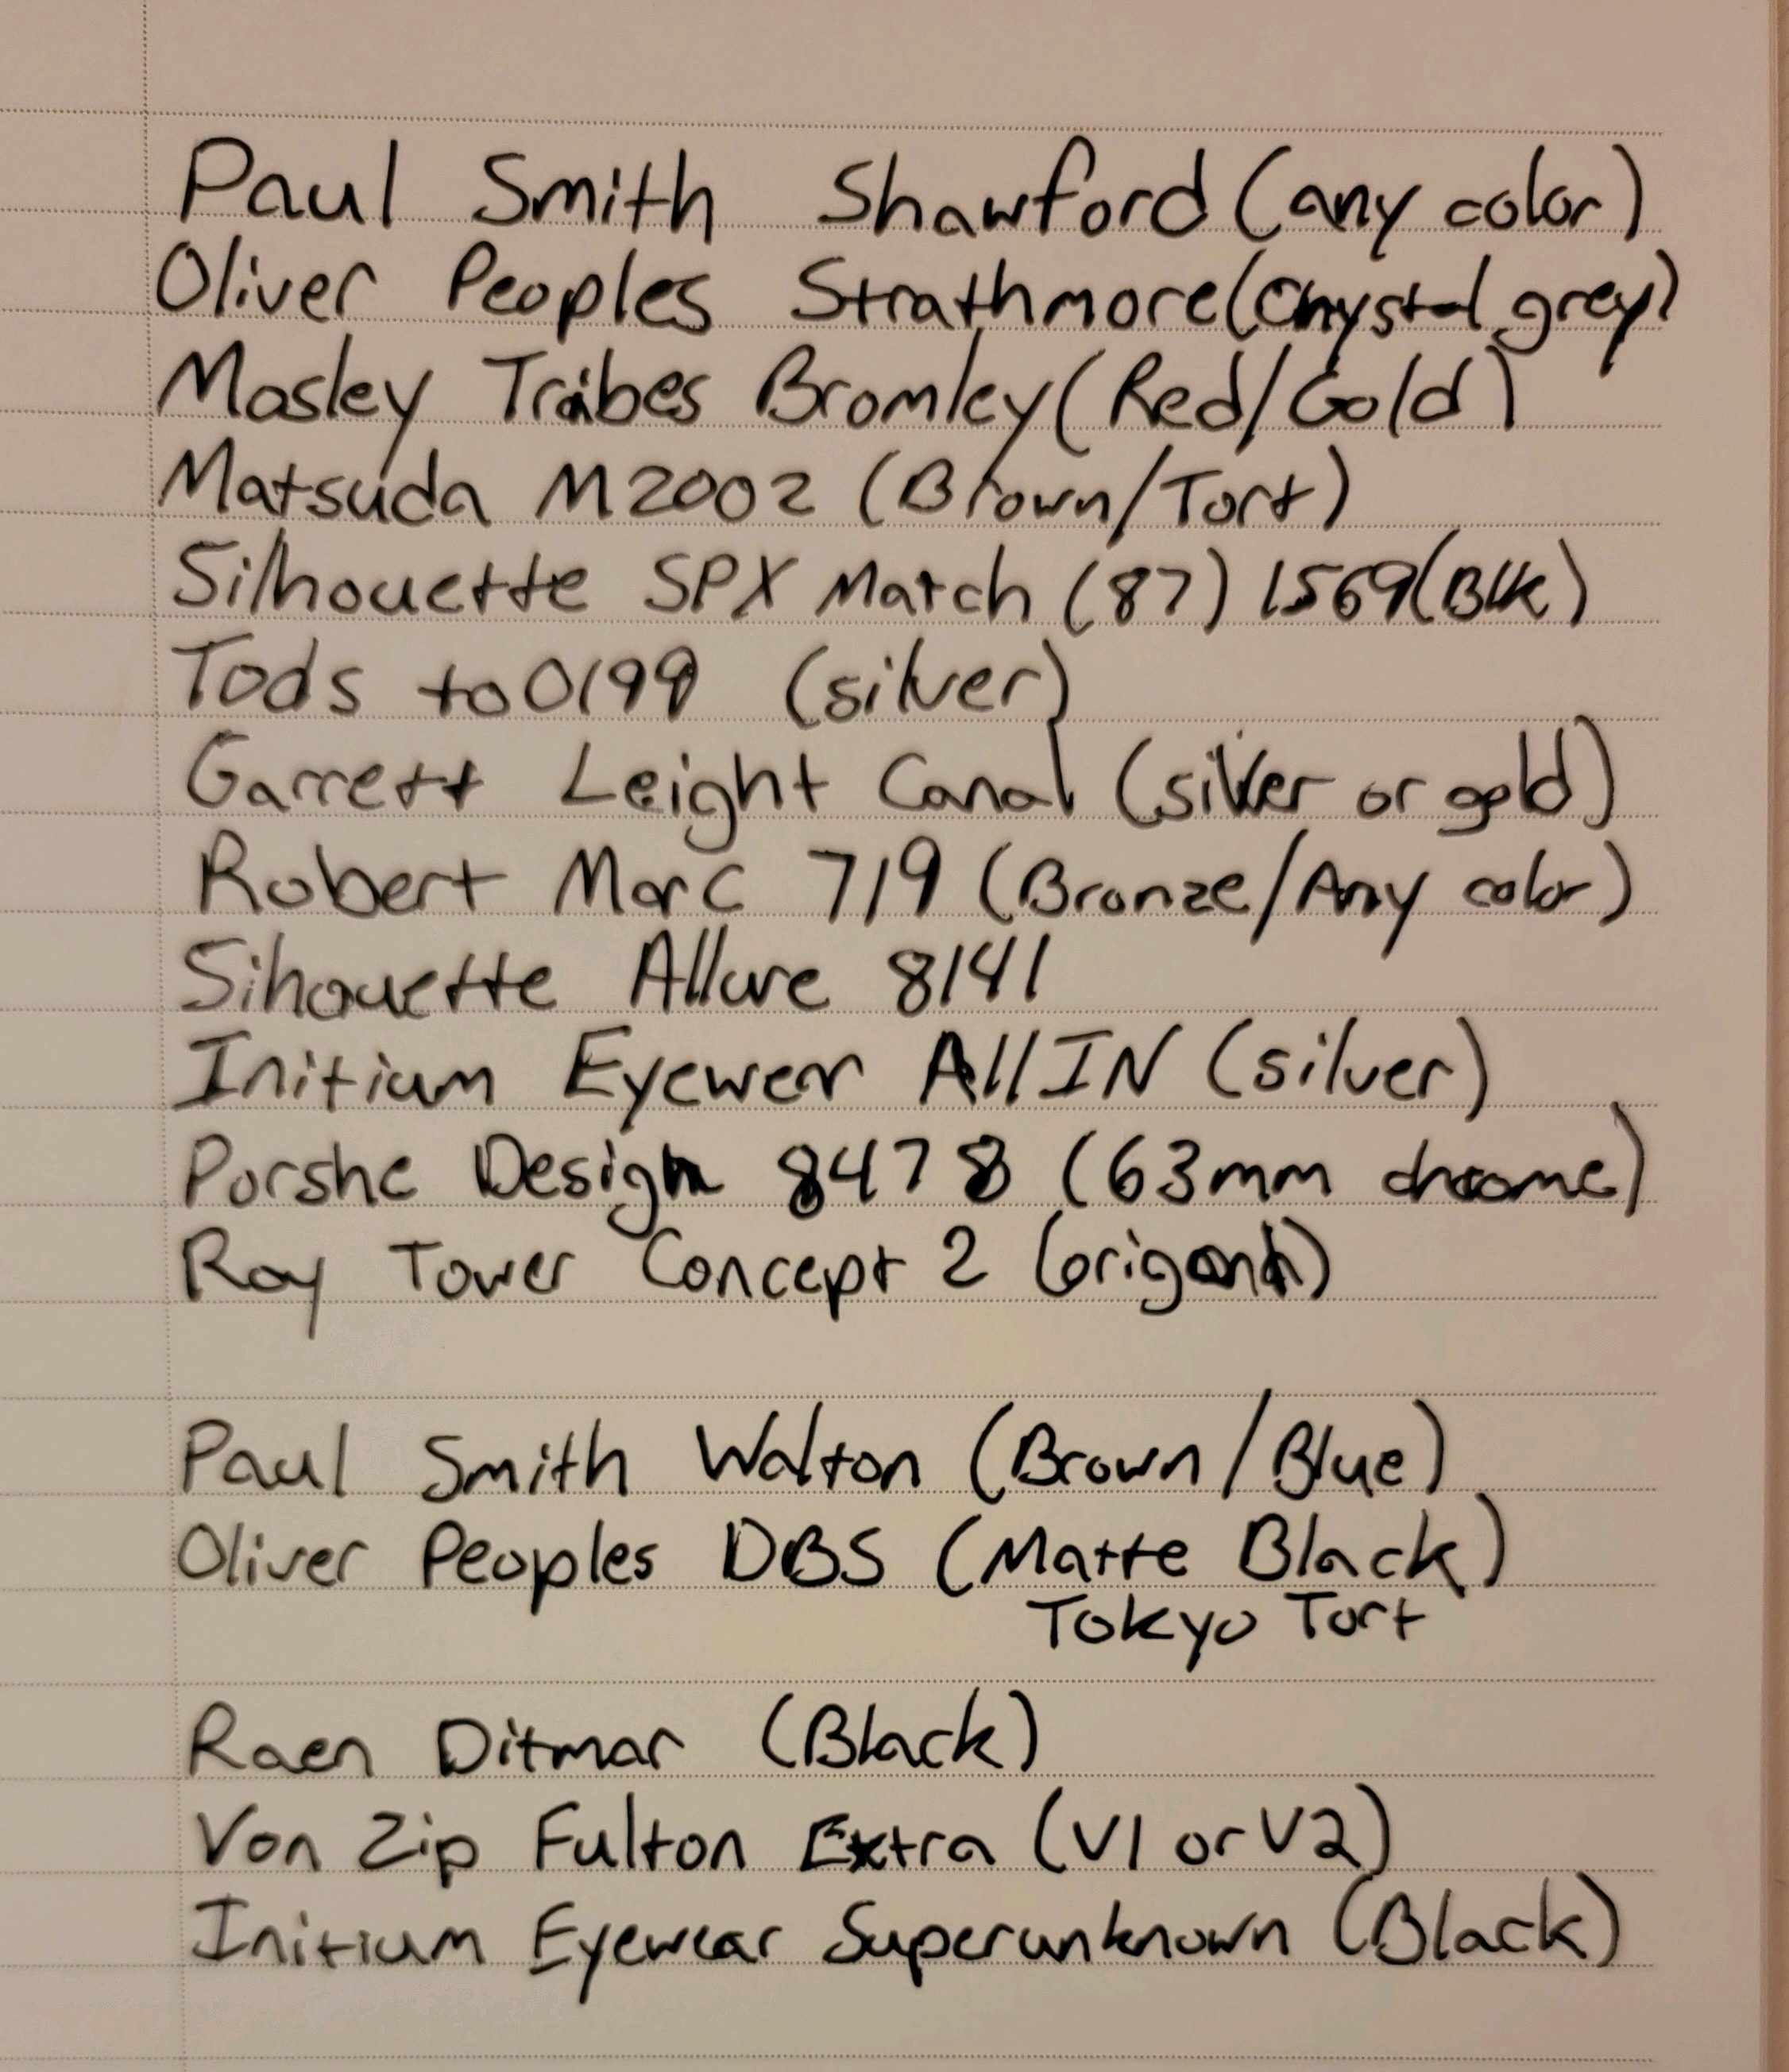 Paul Smith Shawford (any color)
Oliver Peoples Strathmore (Chrystal grey)
Mosley Tribes Bromley (Red/Gold)
Matsuda M2002 (Brown/Tort)
Silhouette SPX Match (87) 1569 (Blk)
Tods to0199 (silver)
Garrett Leight Canal (silver or gold)
Robert Marc 719 (Bronze/Any color)
Sihouette Allure 8141
Initium Eyewear All IN (silver)
Porshe Design 8478 (63mm chrome)
Ray Tower Concept 2
Paul Smith Walton (Brown/Blue)
Oliver Peoples DBS (Matte Black)
Tokyo Tort
Raen Ditmar (Black)
Von Zip Fulton Extra (V1 or V2)
Initium Eyewear Superunknown (Black)